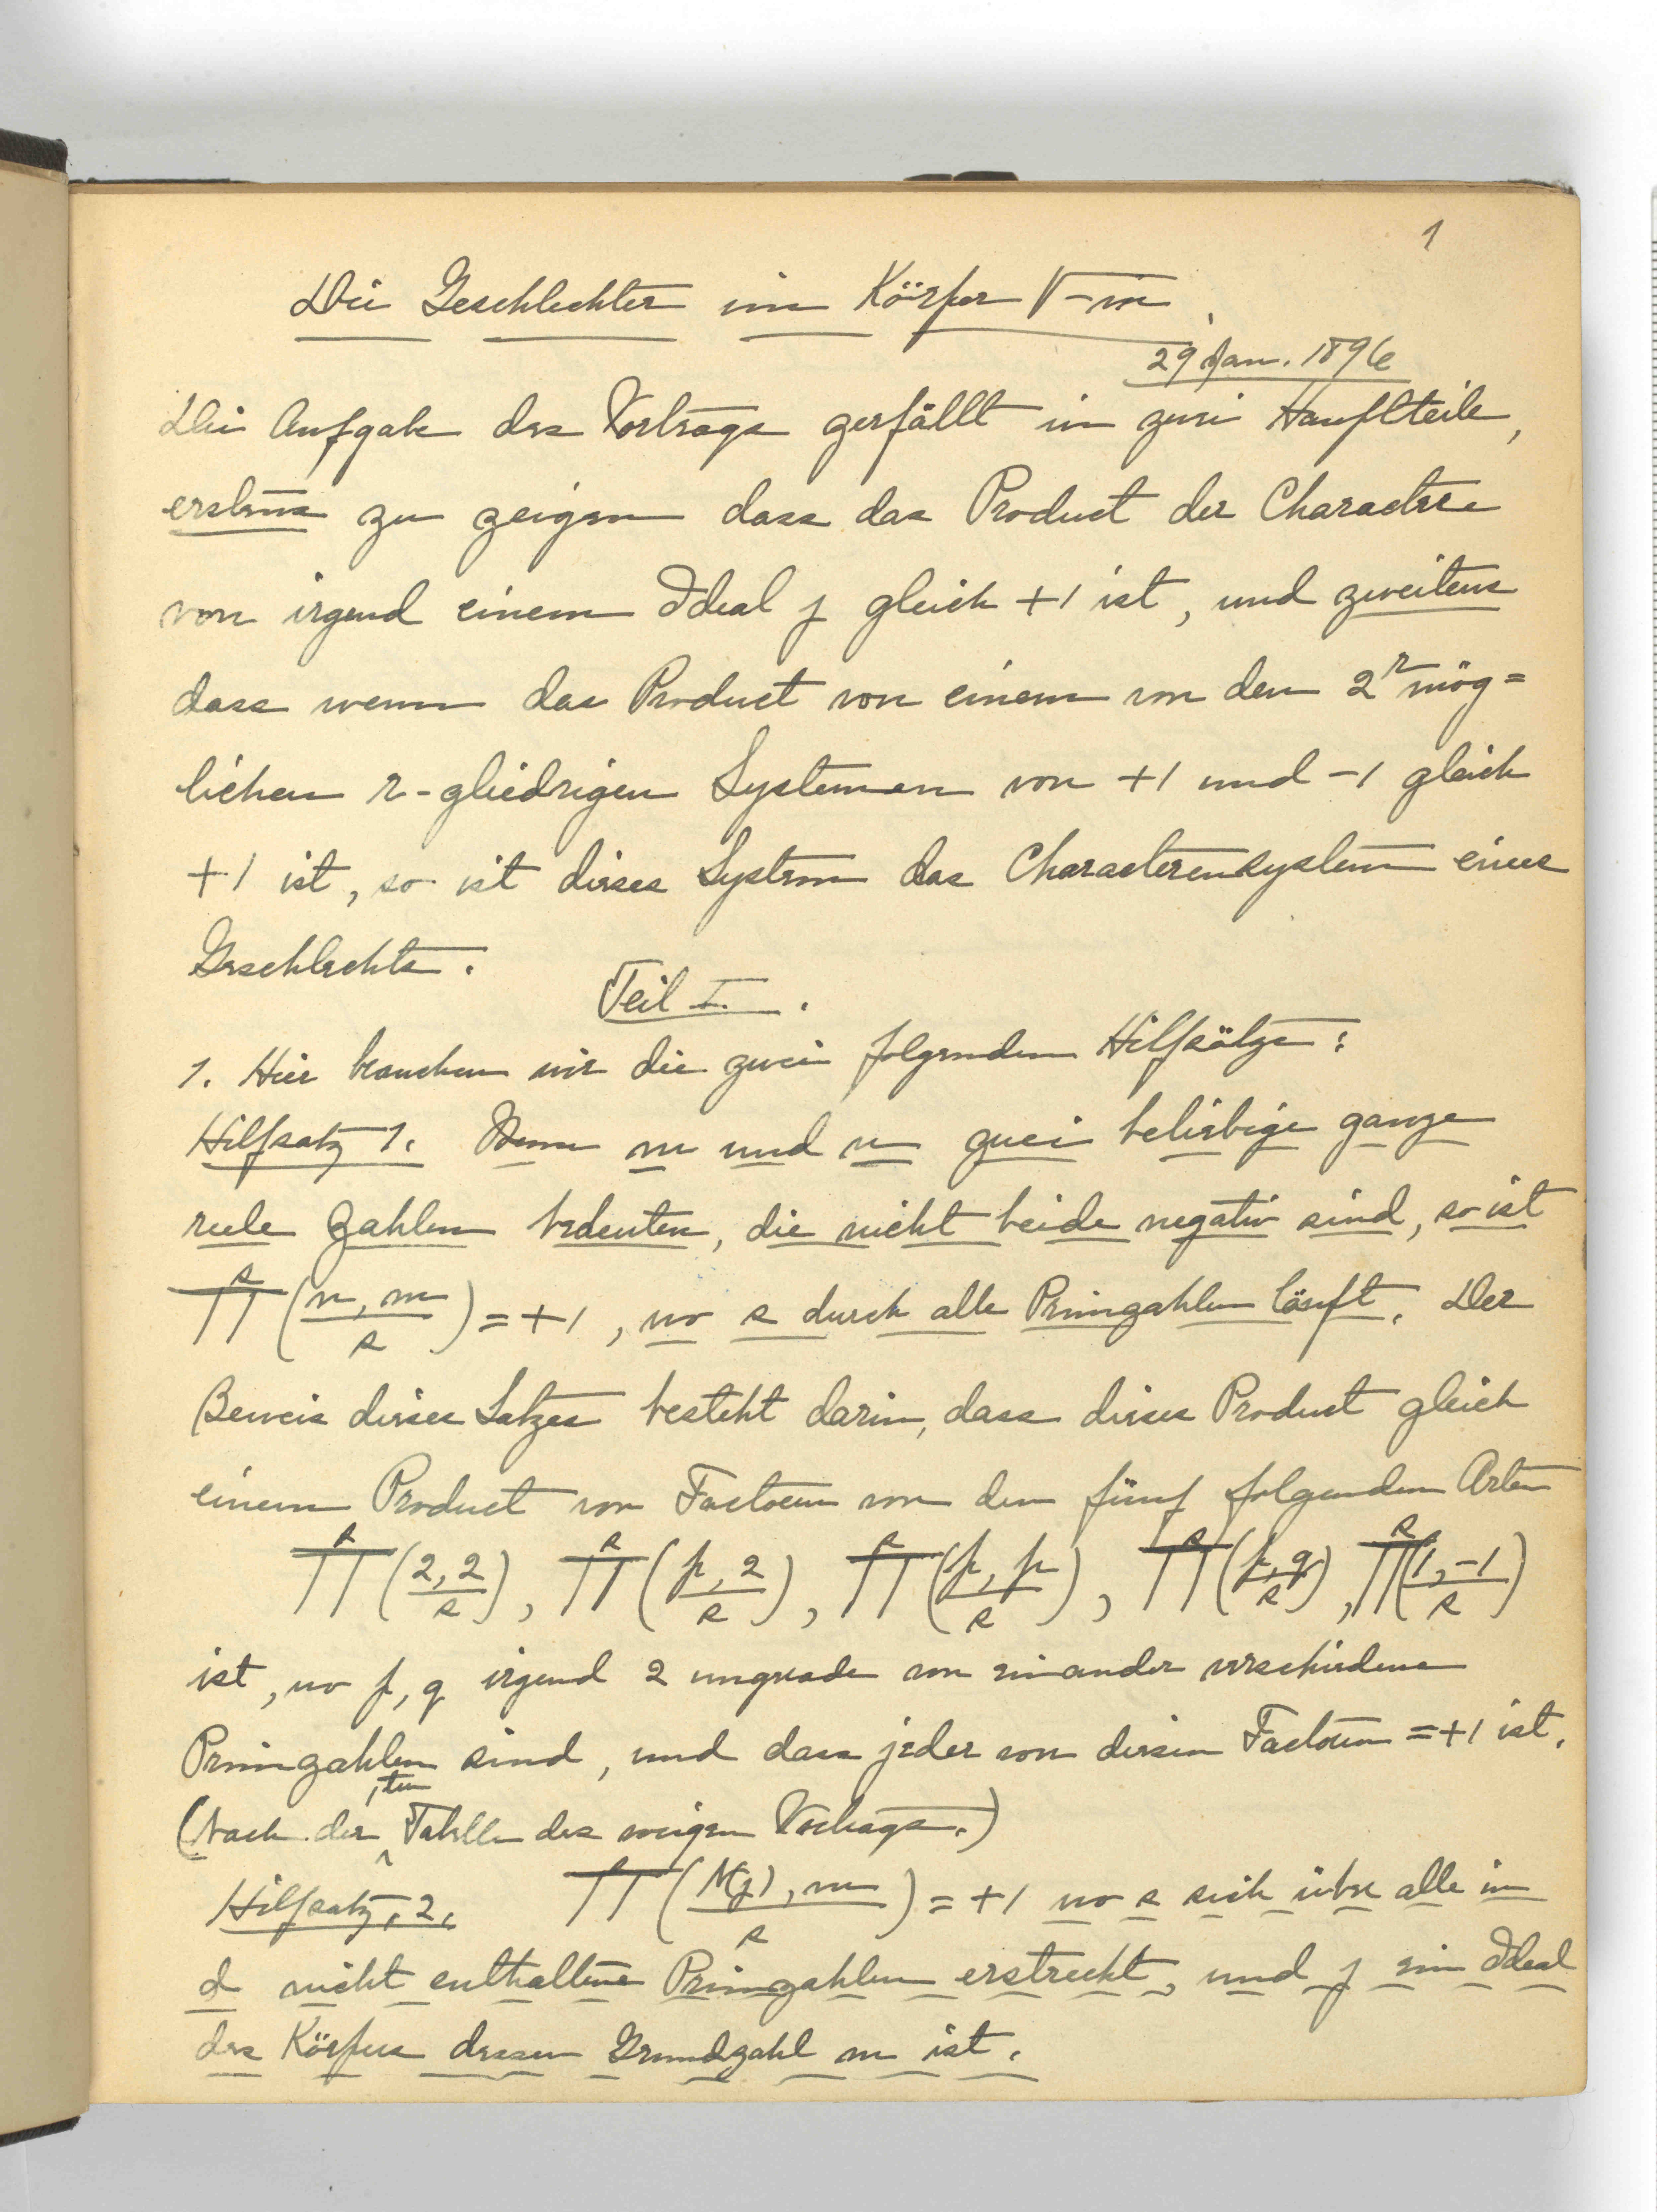 1
Die Geschlechter im Körper √-m.
29 Jan. 1896
Die Aufgabe des Vortrags zerfällt in zwei Hauptteile,
erstens zu zeigen dass das Product der Charactere
von irgend einem Ideal j gleich +1 ist, und zweitens
dass wenn das Product von einem von den 2^r mög=
lichen r-gliedrigen Systemen von +1 und -1 gleich
+1 ist, so ist dieses System das Characterensystem eines
Geschlechts.
Teil I.
1. Hier brauchen wir die zwei folgenden Hilfsätze:
Hilfsatz 1. Wenn m und n zwei beliebige ganze
reele Zahlen bedeuten, die nicht beide negativ sind, so ist
∏^s (n, m / s) = +1, wo s durch alle Primzahlen läuft. Der
Beweis dieses Satzes besteht darin, dass dieses Product gleich
einem Product von Factoren von den fünf folgenden Arten
∏^s (2, 2 / s), ∏^s (p, 2 / s), ∏^s (p, p / s), ∏^s (p, q / s), ∏^s (1, -1 / s)
ist, wo p, q irgend 2 ungrade von einander verschiedene
Primzahlen sind, und dass jeder von diesen Factoren = +1 ist.
(Nach der ,ten Tabelle des vorigen Vortrags.)
Hilfsatz, 2. ∏^s (N(j), m / s) = +1 wo s sich über alle in
d nicht enthaltene Primzahlen erstreckt, und j ein Ideal
des Körpers dessen Grundzahl m ist.